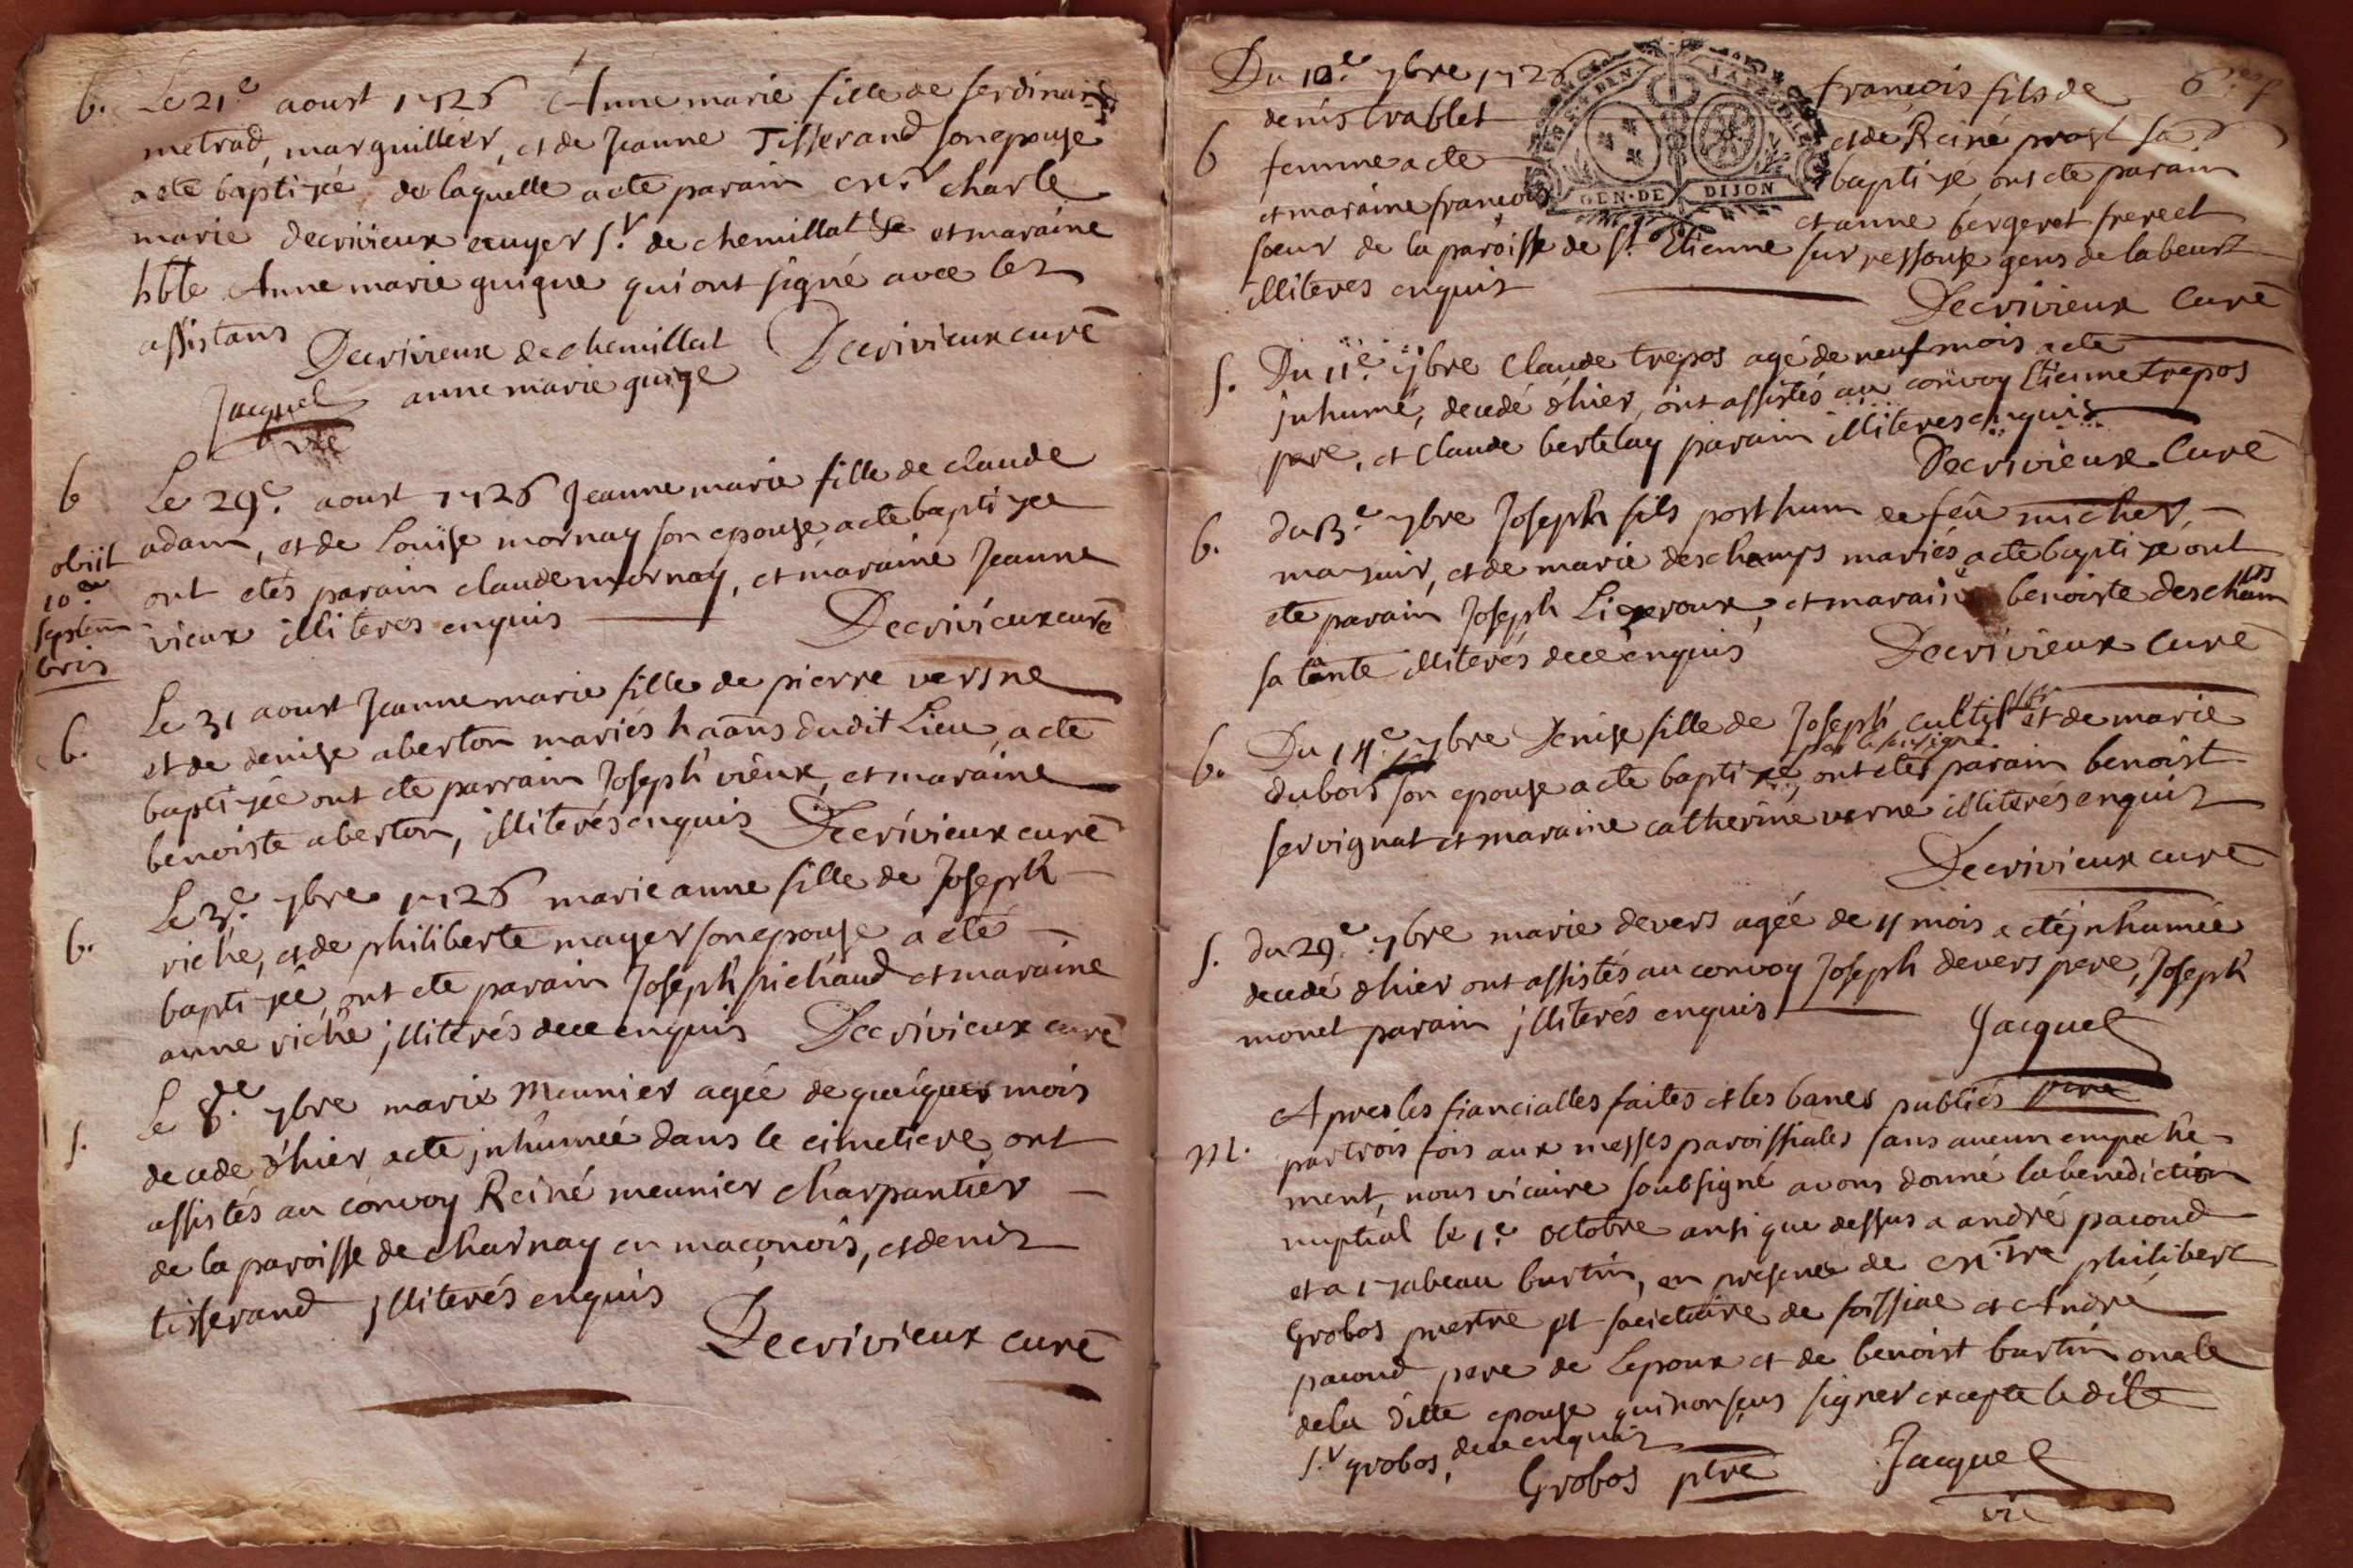 b. Le 21.e aoust 1726 Anne marie fille de ferdinand
metrad, marguillier, et de Jeanne Tisserand son epouse
a ete baptizée, de laquelle a ete parain Mr. charle
marie decrivieux ecuyer Sr. de chemillat et maraine
hble Anne marie guigue qui ont signé avec les
assistans
Decrivieux de chemillat Decrivieux curé
Jacquet anne marie guige
vic
b Le 29.e aoust 1726 Jeanne marie fille de claude
adam, et de Louise mornay son epouse a ete baptizee
obiit
10.a
septem
bris
ont etés parain claude mornay, et maraine Jeanne
vieux illiteres enquis Decrivieux curé
b. Le 31 aoust Jeanne marie fille de pierre versne
et de denise aberton mariés haans dudit Lieu, a ete
baptizée ont ete parrain Joseph vieux, et maraine
benoiste aberton, illiterés enquis Decrivieux curé
b. Le 3.e 7bre 1726 marie anne fille de Joseph
riche, et de philiberte mayer son epouse a eté
baptizée, ont ete parain Joseph michaud et maraine
anne riche illiterés de ce enquis Decrivieux curé
s. Le 8.e 7bre marie Meunier agée de quelques mois
decede d'hier a ete inhumée dans le cimetiere, ont
assistés au convoy Reiné meunier charpantier
de la paroisse de charnay en maconois, et denis
tisserand illiterés enquis
Decrivieux curé
Du 10.e 7bre 1726 francois fils de
denis trablet et de Reine prost sa
b femme a ete baptizé, ont ete parain
et maraine francois et anne bergeret frere et
GEN·DE DIJON
soeur de la paroisse de St. Etienne sur ressouse gens de labeur
illiteres enquis
Decrivieux Curé
s. Du 11.e 7bre Claude trepos agé de neuf mois a ete
inhumé, decedé d'hier, ont assistés au convoy Etienne trepos
pere, et Claude bertelay parain illiteres enquis
Decrivieux Curé
b. du 13.e 7bre Joseph fils posthum de feu michel
mazuir, et de marie deschamps mariés a ete baptizé ont
ete parain Joseph Ligeroux, et maraine benoiste descham
ps
sa tante illiterés de ce enquis Decrivieux Curé
b. Du 14.e 7bre Denise fille de Joseph cultif et de marie
par le soussigné
dubois son epouse a ete baptizée, ont etes parain benoist
servignat et maraine catherine verne illiterés enquis
Decrivieux curé
s. du 29.e 7bre marie devers agée de 11 mois a eté inhumée
decedé d'hier ont assistés au convoy Joseph devers pere, Joseph
monet parain illiterés enquis
Jacquet
Apres les fiancialles faites et les bancs publiés
m. par trois fois aux messes paroissiales sans aucun empeche-
ment, nous vicaire soubsigné avons donné la benediction
nuptial le 1.e octobre ansi que dessus a andré pacoud
et a izabeau burtin, en presence de Mtre philibert
Grobos prestre pt societaire de foissiac et André
pacoud pere de Lepoux et de benoist burtin oncle
de la ditte epouse qui non sçus signer excepte le dit
Sr grobos, de ce enquis
Grobos ptre Jacquet
vic